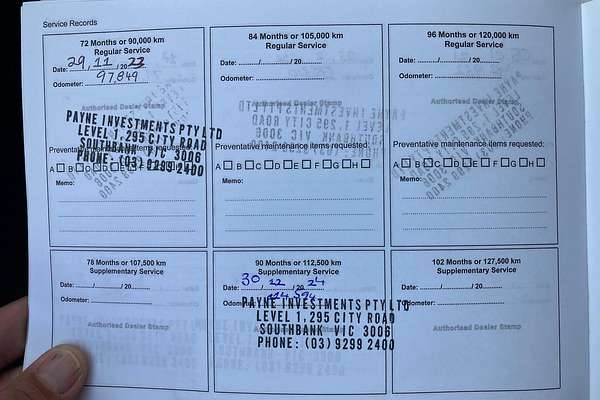 Service Records
72 Months or 90,000 km
Regular Service
Date: 29/11/2023
Odometer: 97,849
Authorised Dealer Stamp
PAYNE INVESTMENTS PTY LTD
LEVEL 1, 295 CITY ROAD
SOUTHBANK VIC 3006
PHONE: (03) 9299 2400
Preventative maintenance items requested:
A B C D E F G H
Memo:
84 Months or 105,000 km
Regular Service
Date: ......./......./20.......
Odometer:
Authorised Dealer Stamp
Preventative maintenance items requested:
A B C D E F G H
Memo:
96 Months or 120,000 km
Regular Service
Date: ......./......./20.......
Odometer:
Authorised Dealer Stamp
Preventative maintenance items requested:
A B C D E F G H
Memo:
78 Months or 107,500 km
Supplementary Service
Date: ......./......./20.......
Odometer:
Authorised Dealer Stamp
90 Months or 112,500 km
Supplementary Service
Date: 30/12/2024
Odometer:
PAYNE INVESTMENTS PTY LTD
LEVEL 1, 295 CITY ROAD
SOUTHBANK VIC 3006
PHONE: (03) 9299 2400
102 Months or 127,500 km
Supplementary Service
Date: ......./......./20.......
Odometer:
Authorised Dealer Stamp